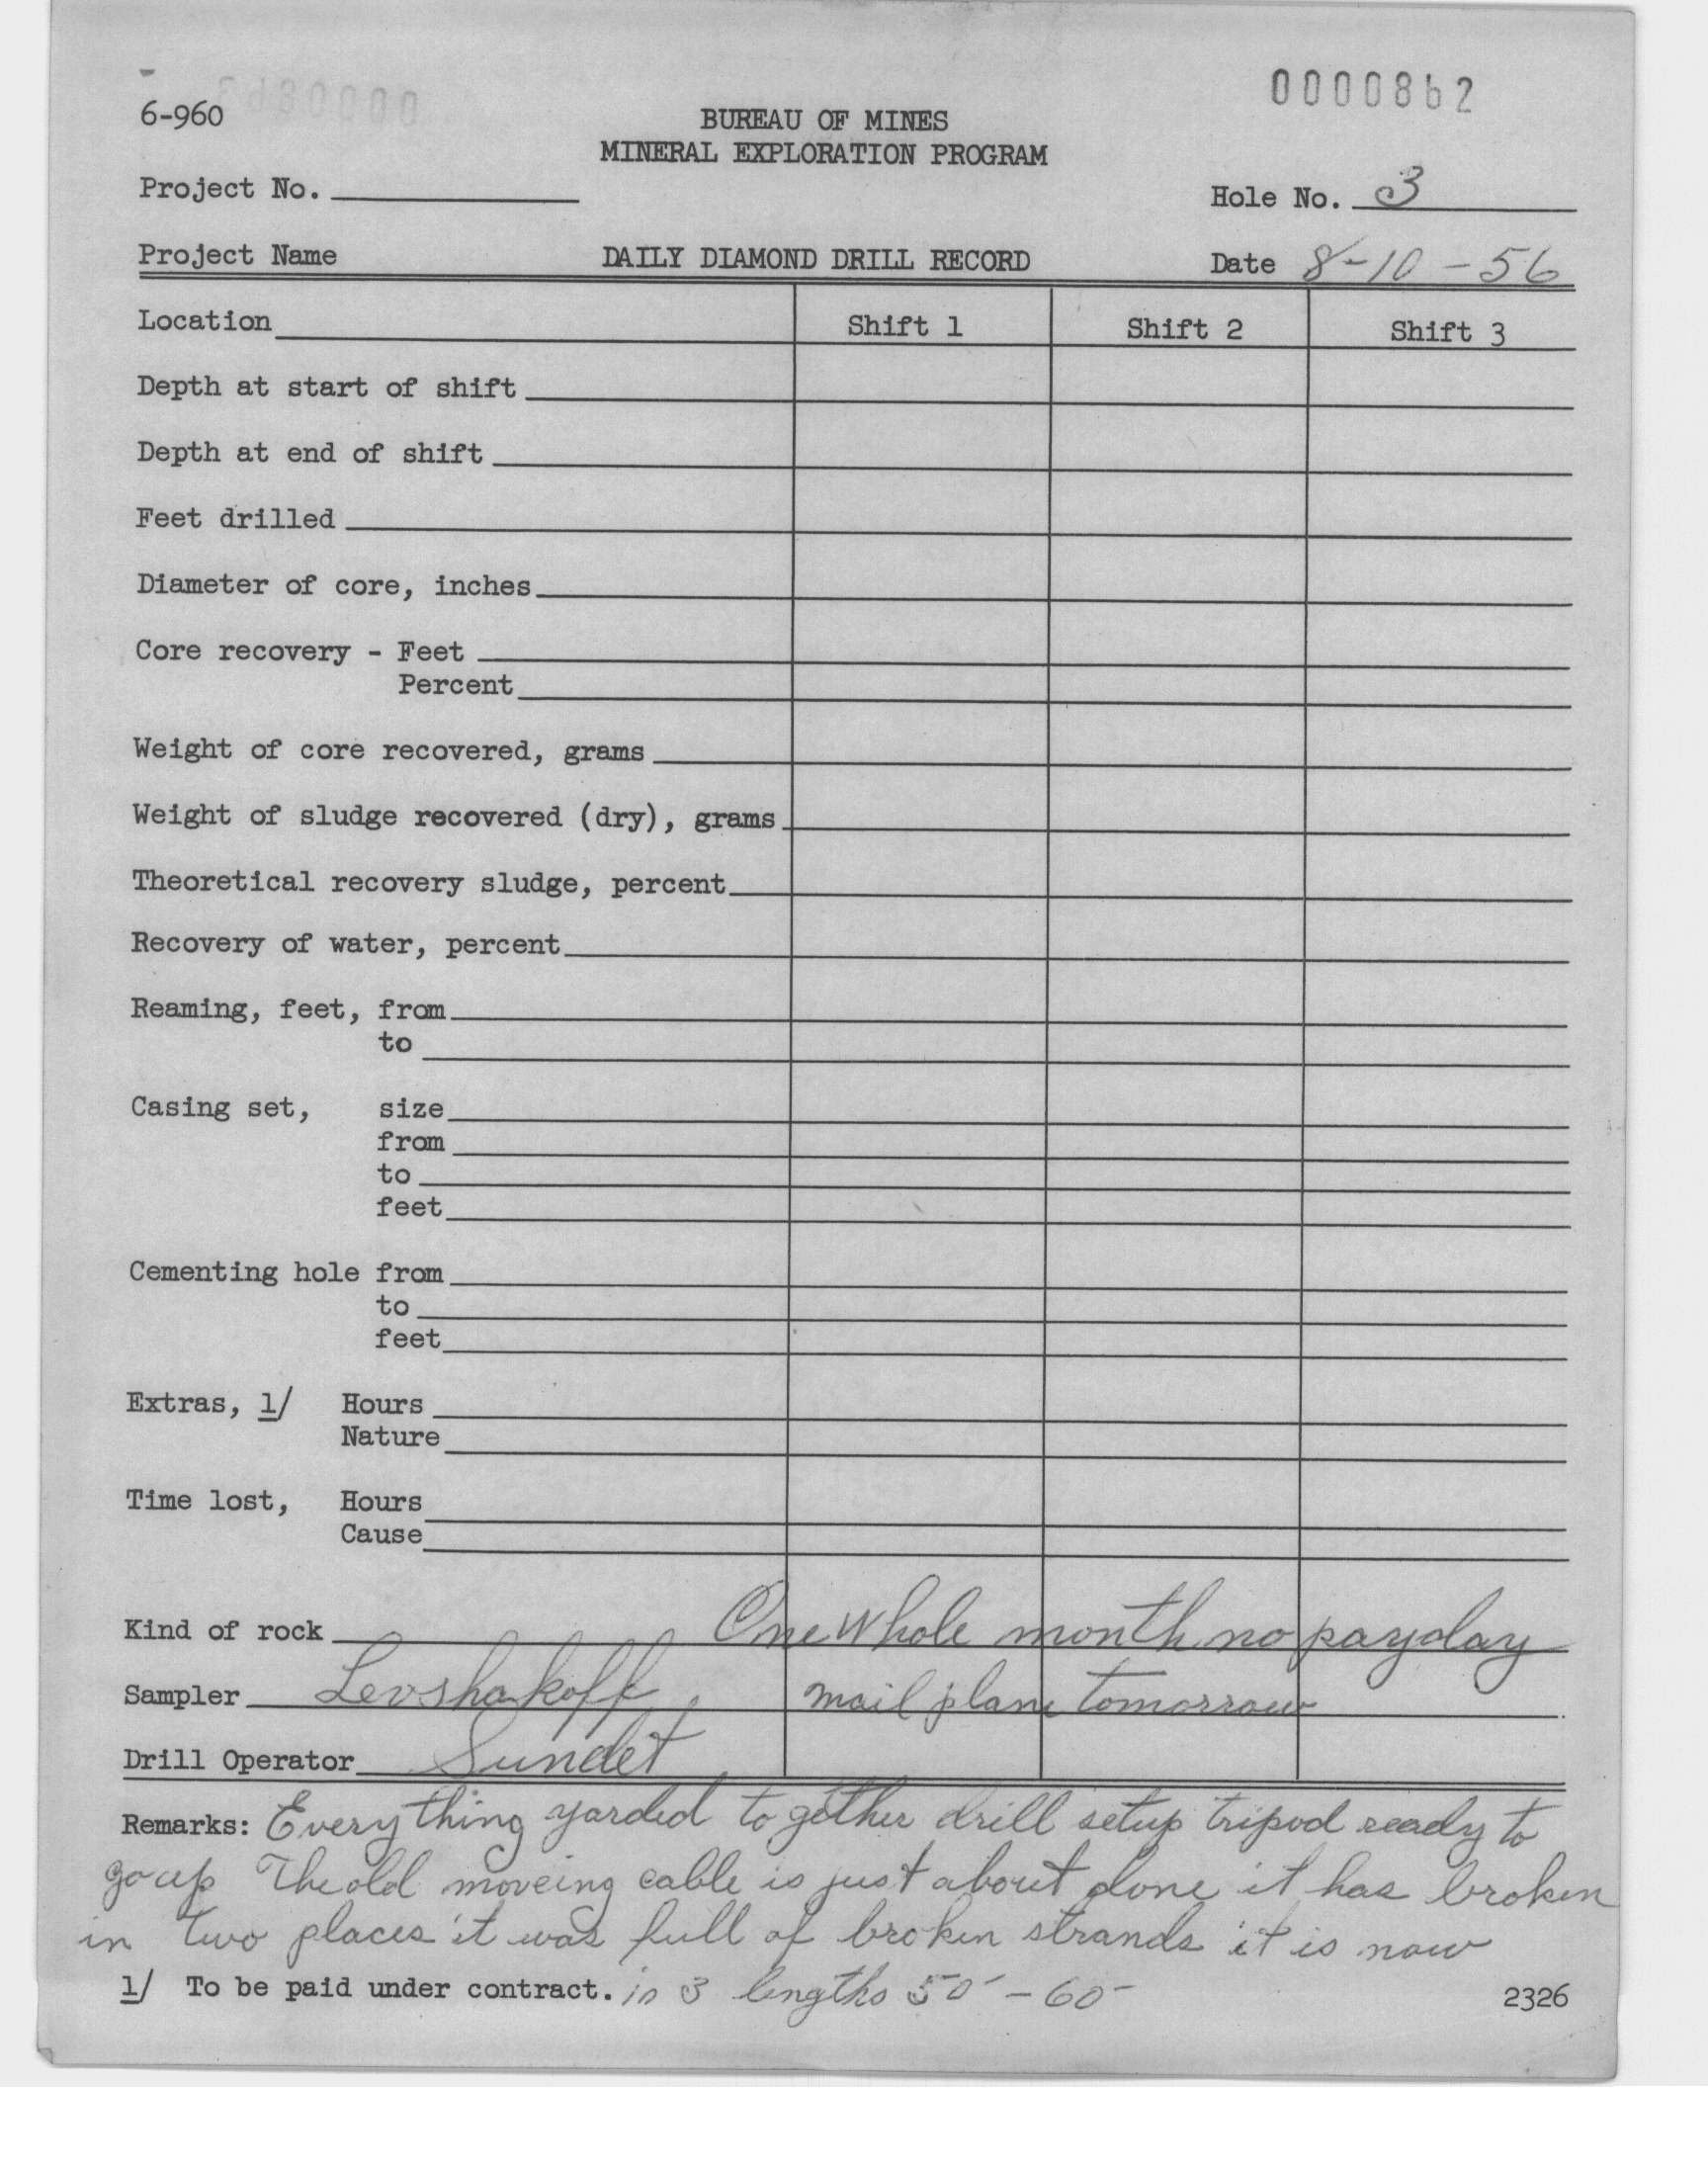 0000862
6-960
BUREAU OF MINES
MINERAL EXPLORATION PROGRAM
Project No.
Hole No. 3
Project Name DAILY DIAMOND DRILL RECORD Date 8-10-56
Location Shift 1 Shift 2 Shift 3
Depth at start of shift
Depth at end of shift
Feet drilled
Diameter of core, inches
Core recovery - Feet
Percent
Weight of core recovered, grams
Weight of sludge recovered (dry), grams
Theoretical recovery sludge, percent
Recovery of water, percent
Reaming, feet, from
to
Casing set, size
from
to
feet
Cementing hole from
to
feet
Extras, 1/ Hours
Nature
Time lost, Hours
Cause
Kind of rock One whole month no payday
Sampler Levshakoff mail plane tomorrow
Drill Operator Sundet
Remarks: Everything yarded together drill setup tripod ready to
go up The old moveing cable is just about done it has broken
in two places it was full of broken strands it is now
1/ To be paid under contract. in 3 lengths 50' - 60' 2326